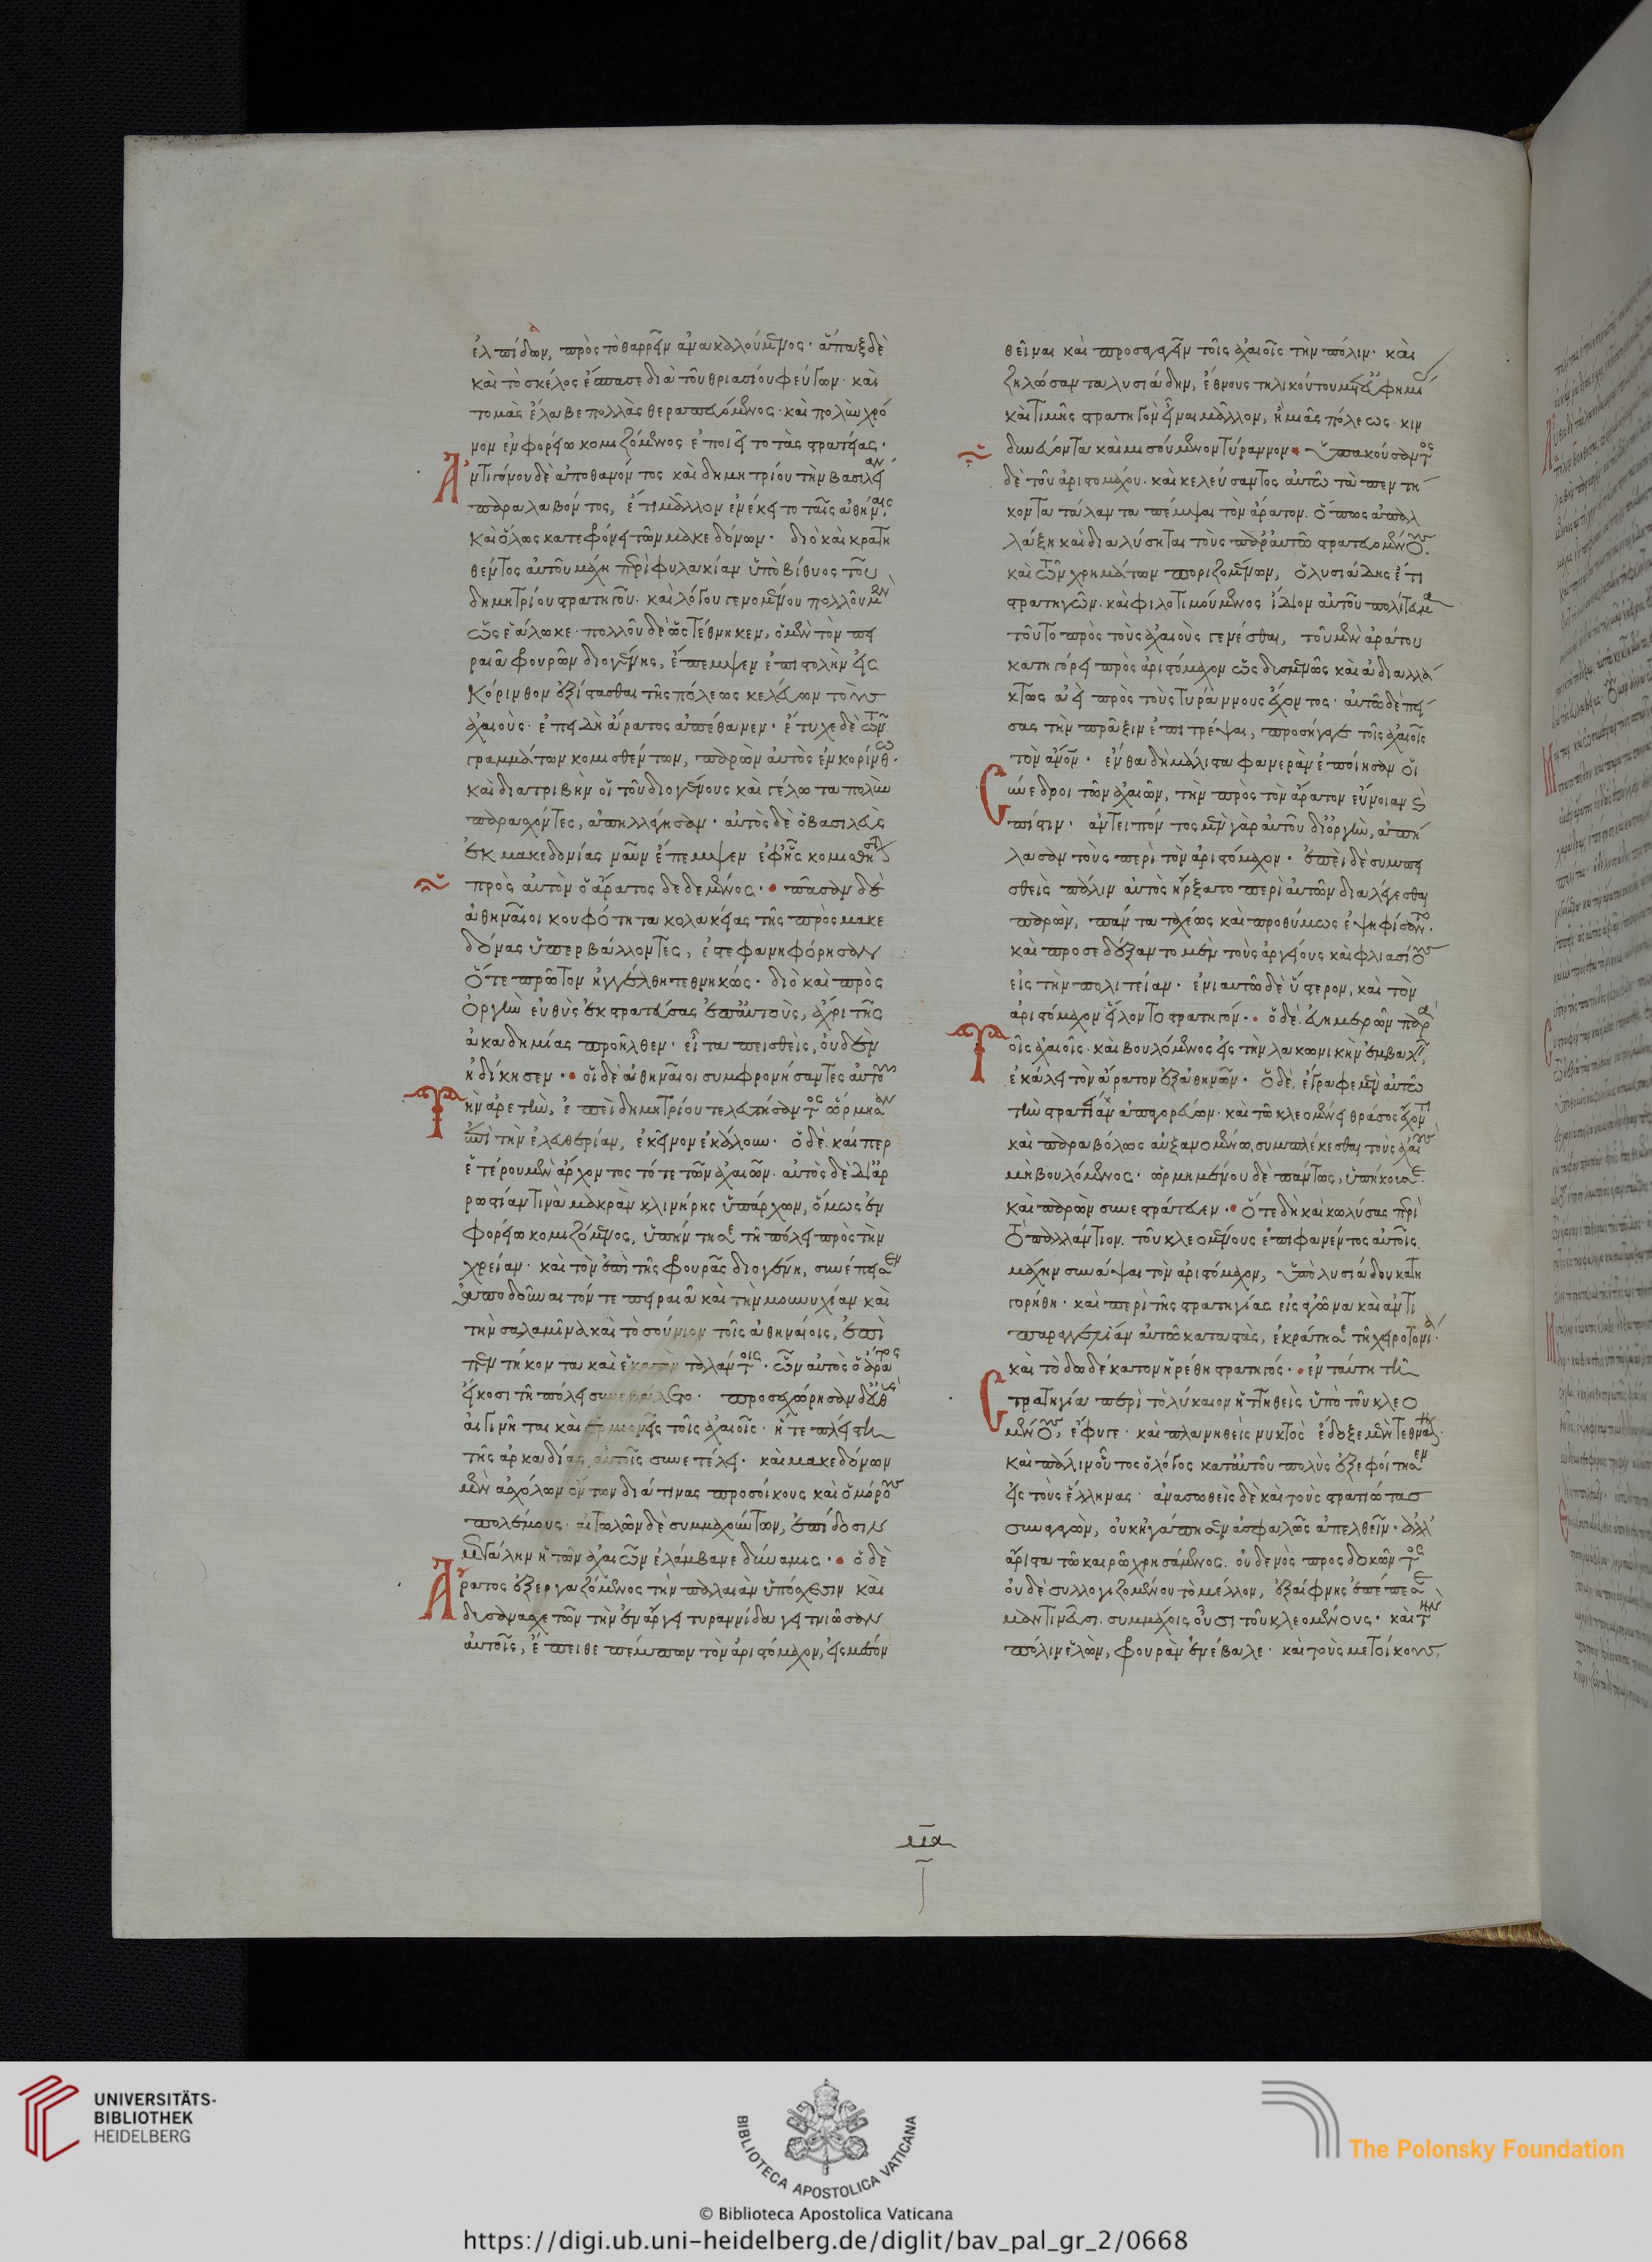 ἐλπίδων, πρὸς τὸ θαρρεῖν ἀνακαλούμενος· ἅπαξ δὲ
καὶ τὸ σκέλος ἔσπασε διὰ τοῦ θριασίου φεύγων· καὶ
τομὰς ἔλαβε πολλὰς θεραπευόμενος· καὶ πολὺν χρό
νον ἐν φορείω κομιζόμενος ἐποιεῖτο τὰς στρατείας·
Ἀντιγόνου δὲ ἀποθανόντος καὶ δημητρίου τὴν βασιλείαν
παραλαβόντος, ἔτι μᾶλλον ἐνέκειτο ταῖς ἀθήναις
καὶ ὅλως κατεφρόνει τῶν μακεδόνων· διὸ καὶ κρατη
θέντος αὐτοῦ μάχη περὶ φυλακίαν ὑπὸ βίθυος τοῦ
δημητρίου στρατηγοῦ· καὶ λόγου γενομένου πολλοῦ μὲν
ὡς ἑάλωκε· πολλοῦ δὲ ὡς τέθνηκεν, ὁ μὲν τὸν πει
ραιᾶ φρουρῶν διογένης, ἔπεμψεν ἐπιστολὴν εἰς
Κόρινθον ἐξίστασθαι τῆς πόλεως κελεύων τοὺς
ἀχαιοὺς· ἐπειδὴ ἄρατος ἀπέθανεν· ἔτυχε δὲ τῶν
γραμμάτων κομισθέντων, παρὼν αὐτὸς ἐν κορίνθω·
καὶ διατριβὴν οἱ τοῦ διογένους καὶ γέλωτα πολὺν
παρασχόντες, ἀπηλλάγησαν· αὐτὸς δὲ ὁ βασιλεὺς
ἐκ μακεδονίας ναῦν ἔπεμψεν ἐφ' ἧς κομισθήσεται
πρὸς αὐτὸν ὁ ἄρατος δεδεμένος· πᾶσαν δὲ
ἀθηναῖοι κουφότητα κολακείας τῆς πρὸς μακε
δόνας ὑπερβάλλοντες, ἐστεφανηφόρησαν
ὅτε πρῶτον ἠγγέλθη τεθνηκώς· διὸ καὶ πρὸς
ὀργὴν εὐθὺς ἐκστρατεύσας ἐπ' αὐτοὺς, ἄχρι τῆς
ἀκαδημίας προῆλθεν· εἶτα πεισθεὶς, οὐδὲν
ἠδίκησεν· οἱ δὲ ἀθηναῖοι συμφρονήσαντες αὐτοῦ
Τὴν ἀρετὴν, ἐπεὶ δημητρίου τελευτήσαντος ὥρμησαν
ἐπὶ τὴν ἐλευθερίαν, ἐκεῖνον ἐκάλουν· ὁ δὲ καίπερ
ἑτέρου μὲν ἄρχοντος τότε τῶν ἀχαιῶν· αὐτὸς δὲ δι' ἀρ
ρωστίαν τινὰ μακρὰν κλινήρης ὑπάρχων, ὅμως ἐν
φορείω κομιζόμενος, ὑπήντησε τῆ πόλει πρὸς τὴν
χρείαν· καὶ τὸν ἐπὶ τῆς φρουρᾶς διογένη, συνέπεισεν
ἀποδοῦναι τόν τε πειραιᾶ καὶ τὴν μουνυχίαν καὶ
τὴν σαλαμῖνα καὶ τὸ σούνιον τοῖς ἀθηναίοις, ἐπὶ
πεντήκοντα καὶ ἑκατὸν ταλάντοις· ὧν αὐτὸς ὁ ἄρατος
εἴκοσι τῆ πόλει συνεβάλετο· προσεχώρησαν δ' εὐθὺς
αἰγινῆται καὶ ἑρμιονεῖς τοῖς ἀχαιοῖς· ἥ τε πλείστη
τῆς ἀρκαδίας αὐτοῖς συνετέλει· καὶ μακεδόνων
μὲν ἀσχόλων ὄντων διά τινας προσοίκους καὶ ὁμόρους
πολέμους· αἰτωλῶν δὲ συμμαχούντων, ἐπίδοσιν
μεγάλην ἡ τῶν ἀχαιῶν ἐλάμβανε δύναμις· ὁ δὲ
Ἄρατος ἐξεργαζόμενος τὴν παλαιὰν ὑπόθεσιν καὶ
δυσανασχετῶν τὴν ἐν ἄργει τυραννίδα γειτνιῶσαν
αὐτοῖς, ἔπειθε πέμπων τὸν ἀρίστόμαχον, εἰς μέσον
θεῖναι καὶ προσαγαγεῖν τοῖς ἀχαιοῖς τὴν πόλιν· καὶ
ζηλώσαντα λυσιάδην, ἔθνους τηλικούτου μετ' εὐφημίας
καὶ τιμῆς στρατηγὸν εἶναι μᾶλλον, ἢ μιᾶς πόλεως κιν
δυνεύοντα καὶ μισούμενον τύραννον· ὑπακούσαντος
δὲ τοῦ ἀριστομάχου· καὶ κελεύσαντος αὐτῶ τὰ πεντή
κοντα τάλαντα πέμψαι τὸν ἄρατον. ὅπως ἀπαλ
λάξη καὶ διαλύσηται τοὺς παρ' αὐτῶ στρατευομένους·
καὶ τῶν χρημάτων ποριζομένων, ὁ λυσιάδης ἔτι
στρατηγῶν· καὶ φιλοτιμούμενος ἴδιον αὐτοῦ πολίτευμα
τοῦτο πρὸς τοὺς ἀχαιοὺς γενέσθαι, τοῦ μὲν ἀράτου
κατηγόρει πρὸς ἀριστόμαχον ὡς δυσμενῶς καὶ ἀδιαλλά
κτως ἀεὶ πρὸς τοὺς τυράννους ἔχοντος· αὐτῶ δὲ πεί
σας τὴν πρᾶξιν ἐπιτρέψαι, προσήγαγε τοῖς ἀχαιοῖς
τὸν ἄνθρωπον· ἔνθα δὴ μάλιστα φανερὰν ἐποίησαν οἱ
Σύνεδροι τῶν ἀχαιῶν, τὴν πρὸς τὸν ἄρατον εὔνοιαν καὶ
πίστιν· ἀντειπόντος μὲν γὰρ αὐτοῦ δι' ὀργὴν, ἀπή
λασαν τοὺς περὶ τὸν ἀριστόμαχον· ἐπεὶ δὲ συμπει
σθεὶς πάλιν αὐτὸς ἤρξατο περὶ αὐτῶν διαλέγεσθαι
παρὼν, πάντα ταχέως καὶ προθύμως ἐψηφίσαντο·
καὶ προσεδέξαντο μὲν τοὺς ἀργείους καὶ φλιασίους
εἰς τὴν πολιτείαν· ἐνιαυτῶ δὲ ὕστερον, καὶ τὸν
ἀριστόμαχον εἵλοντο στρατηγόν· ὁ δὲ εὐημερῶν παρὰ
Τοῖς ἀχαιοῖς· καὶ βουλόμενος εἰς τὴν λακωνικὴν ἐμβαλεῖν,
ἐκάλει τὸν ἄρατον ἐξ ἀθηνῶν· ὁ δὲ ἔγραφε μὲν αὐτῶ
τὴν στρατείαν ἀπαγορεύων· καὶ τῶ κλεομένει θράσος ἔχοντι
καὶ παραβόλως αὐξανομένω, συμπλέκεσθαι τοὺς ἀχαιοὺς
μὴ βουλόμενος· ὡρμημένου δὲ πάντως, ὑπήκουσε·
καὶ παρὼν συνεστράτευεν· ὅτε δὴ καὶ κωλύσας περὶ
τὸ παλλάντιον. τοῦ κλεομένους ἐπιφανέντος αὐτοῖς.
μάχην συνάψαι τὸν ἀριστόμαχον, ὑπὸ λυσιάδου κατη
γορήθη· καὶ περὶ τῆς στρατηγίας εἰς ἀγῶνα καὶ ἀντι
παραγγελίαν αὐτῶ καταστὰς, ἐκράτησε τῆ χειροτονία·
καὶ τὸ δωδέκατον ἡρέθη στρατηγός· ἐν ταύτη τῆ
Στρατηγία περὶ τὸ λύκαιον ἡττηθεὶς ὑπὸ τοῦ κλεο
μένους, ἔφυγε· καὶ πλανηθεὶς νυκτὸς ἔδοξε μὲν τεθνάναι·
καὶ πάλιν οὗτος ὁ λόγος κατ' αὐτοῦ πολὺς ἐξεφοίτησεν
εἰς τοὺς ἕλληνας· ἀνασωθεὶς δὲ καὶ τοὺς στρατιώτας
συναγαγὼν, οὐκ ἠγάπησεν ἀσφαλῶς ἀπελθεῖν· ἀλλ'
ἄριστα τῶ καιρῶ χρησάμενος. οὐδενὸς προσδοκῶντος
οὐδὲ συλλογιζομένου τὸ μέλλον, ἐξαίφνης ἐπέπεσε
μαντινεῦσι. συμμάχοις οὖσι τοῦ κλεομένους· καὶ τὴν
πόλιν ἑλὼν, φρουρὰν ἐνέβαλε· καὶ τοὺς μετοίκους,
UNIVERSITÄTS-
BIBLIOTHEK
HEIDELBERG
BIBLIOTECA APOSTOLICA VATICANA
The Polonsky Foundation
© Biblioteca Apostolica Vaticana
https://digi.ub.uni-heidelberg.de/diglit/bav_pal_gr_2/0668